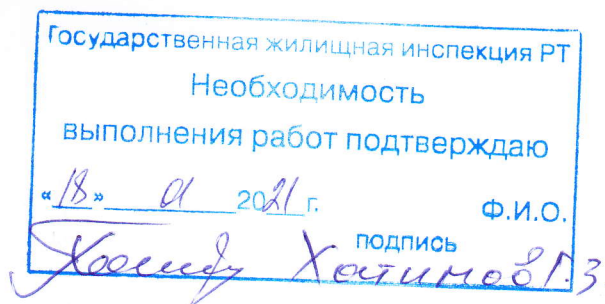 Государственная жилищная инспекция РТ
Необходимость
выполнения работ подтверждаю
«18» 01 2021 г. Ф.И.О.
подпись
Хатипов Г.З